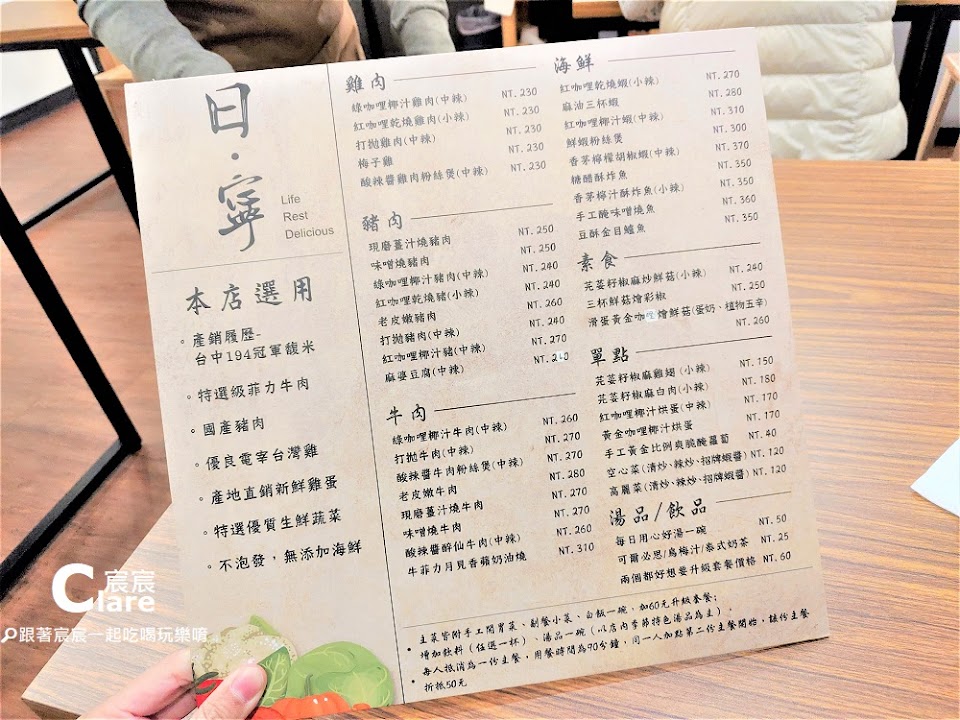 日·寧
Life
Rest
Delicious
本店選用
。產銷履歷-
台中194冠軍馥米
。特選級菲力牛肉
。國產豬肉
。優良電宰台灣雞
。產地直銷新鮮雞蛋
。特選優質生鮮蔬菜
。不泡發,無添加海鮮
雞肉
綠咖哩椰汁雞肉(中辣) NT. 230
紅咖哩乾燒雞肉(小辣) NT. 230
打拋雞肉(中辣) NT. 230
梅子雞 NT. 230
酸辣醬雞肉粉絲煲(中辣) NT. 230
豬肉
現磨薑汁燒豬肉 NT. 250
味噌燒豬肉 NT. 250
綠咖哩椰汁豬肉(中辣) NT. 240
紅咖哩乾燒豬(小辣) NT. 240
老皮嫩豬肉 NT. 260
打拋豬肉(中辣) NT. 240
紅咖哩椰汁豬(中辣) NT. 270
麻婆豆腐(中辣) NT.
牛肉
綠咖哩椰汁牛肉(中辣) NT. 260
打拋牛肉(中辣) NT. 270
酸辣醬牛肉粉絲煲(中辣) NT. 270
老皮嫩牛肉 NT. 280
現磨薑汁燒牛肉 NT. 270
味噌燒牛肉 NT. 270
酸辣醬醉仙牛肉(中辣) NT. 260
牛菲力月見香蘋奶油燒 NT. 310
海鮮
紅咖哩乾燒蝦(小辣) NT. 270
麻油三杯蝦 NT. 280
紅咖哩椰汁蝦(中辣) NT. 310
鮮蝦粉絲煲 NT. 300
香茅檸檬胡椒蝦(中辣) NT. 370
糖醋酥炸魚 NT. 350
香茅檸汁酥炸魚(小辣) NT. 350
手工醃味噌燒魚 NT. 360
豆酥金目鱸魚 NT. 350
素食
芫荽籽椒麻炒鮮菇(小辣) NT. 240
三杯鮮菇燴彩椒 NT. 250
滑蛋黃金咖哩燴鮮菇(蛋奶、植物五辛) NT. 260
單點
芫荽籽椒麻雞翅(小辣) NT. 150
芫荽籽椒麻白肉(小辣) NT. 180
紅咖哩椰汁烘蛋(中辣) NT. 170
黃金咖哩椰汁烘蛋 NT. 170
手工黃金比例爽脆醃蘿蔔 NT. 40
空心菜(清炒、辣炒、招牌蝦醬) NT. 120
高麗菜(清炒、辣炒、招牌蝦醬) NT. 120
湯品/飲品
每日用心好湯一碗 NT. 50
可爾必思/烏梅汁/泰式奶茶 NT. 25
兩個都好想要升級套餐價格 NT. 60
• 主菜皆附手工開胃菜、副餐小菜、白飯一碗,加60元升級套餐;
增加飲料(任選一杯)、湯品一碗(以店內季節特色湯品為主)。
• 每人抵消為一份主餐,用餐時間為90分鐘,同一人加點第二份主餐開始,該份主餐
折抵50元
Clare
宸宸
跟著宸宸一起吃喝玩樂唷